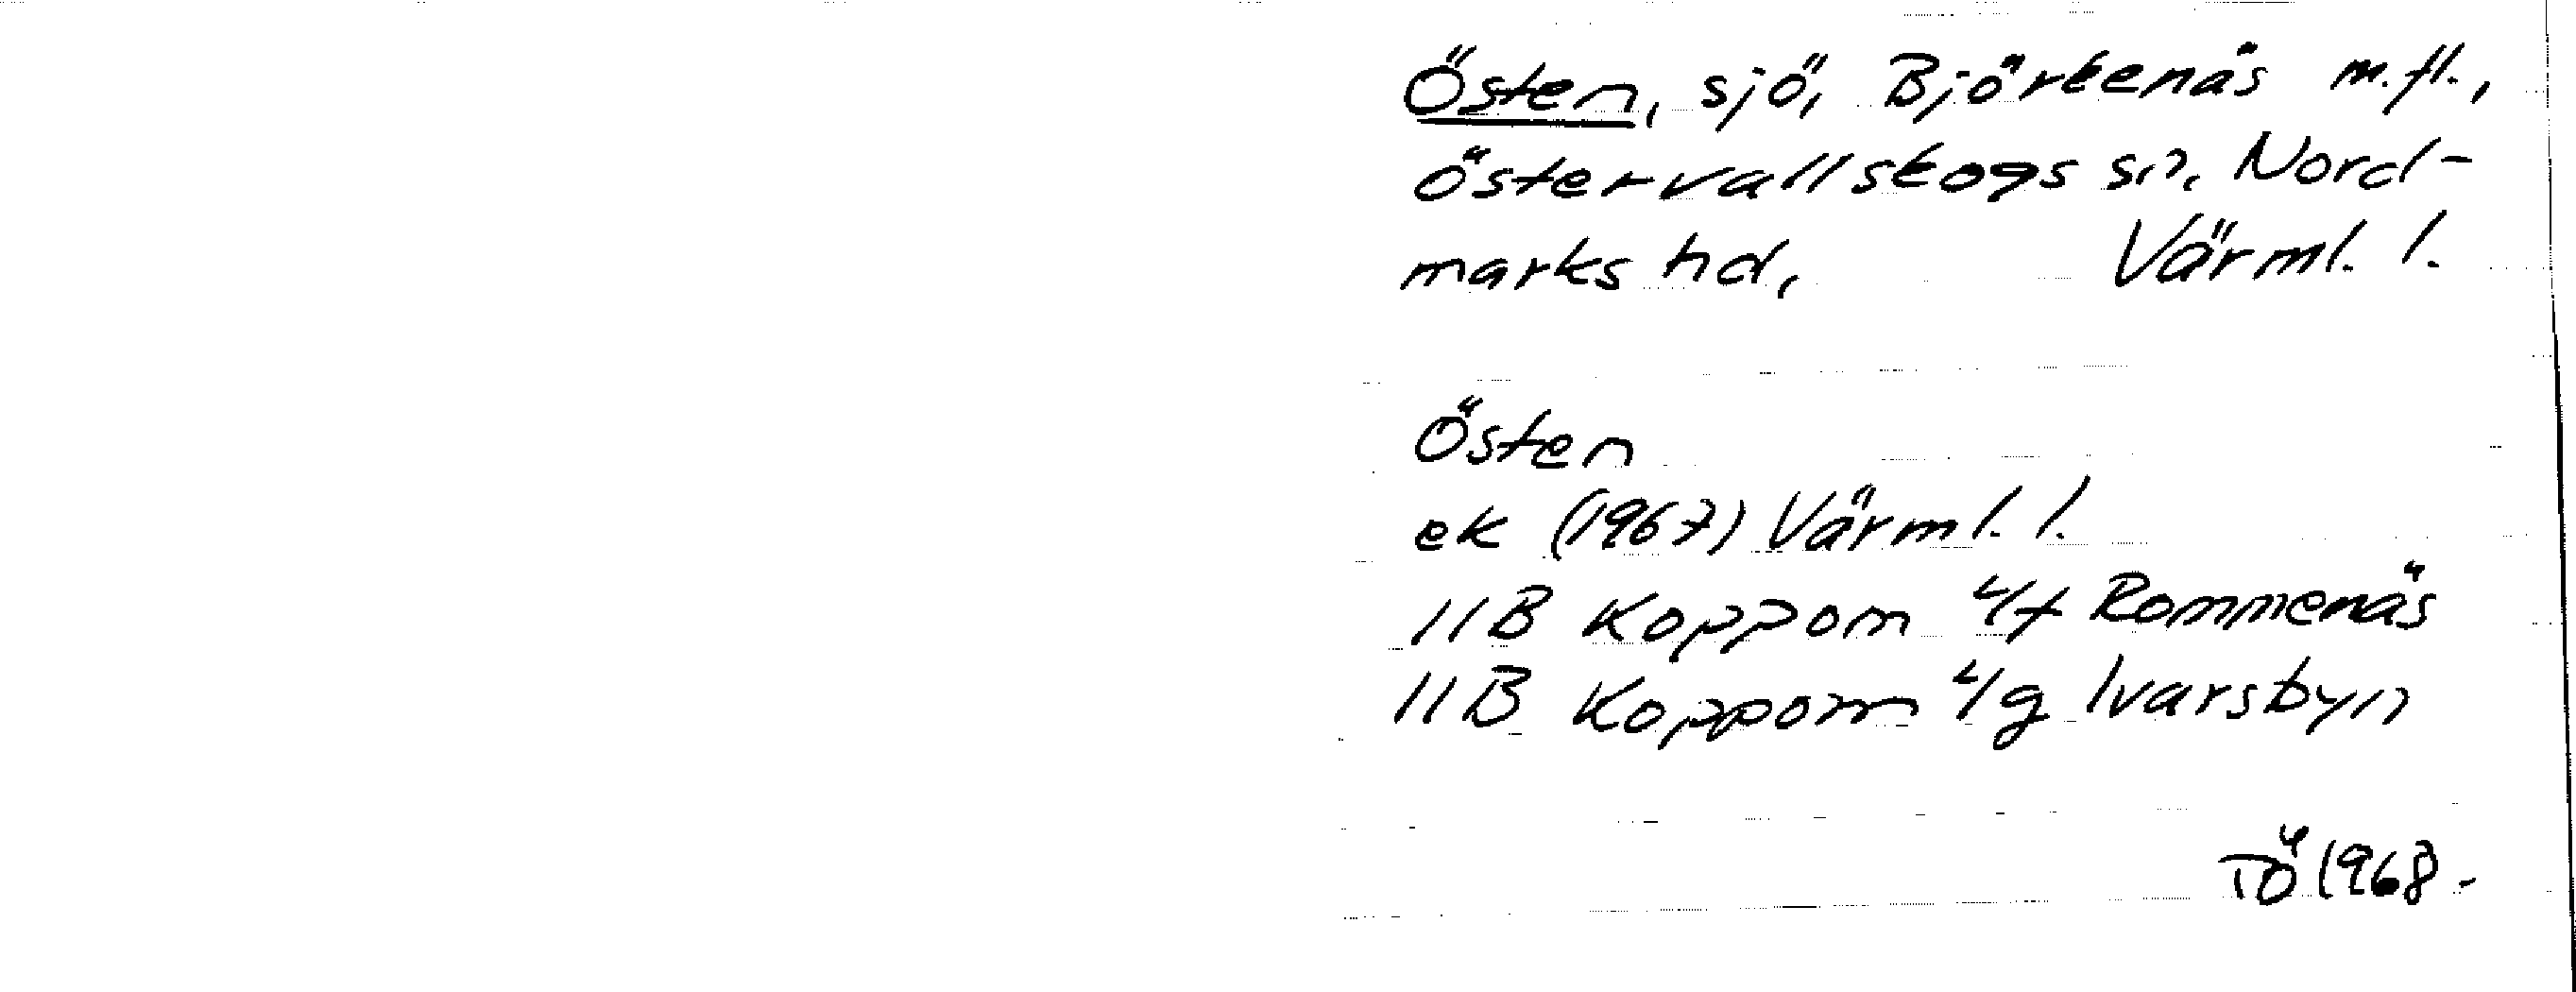 Östen, sjö, Björkenäs m.fl.,
Östervallskogs sn, Nord-
marks hd, Värml. l.
Östen
ek (1967) Värml. l.
11B Koppom 4f Rommenäs
11B Koppom 4g Ivarsbyn
TÖ 1968.